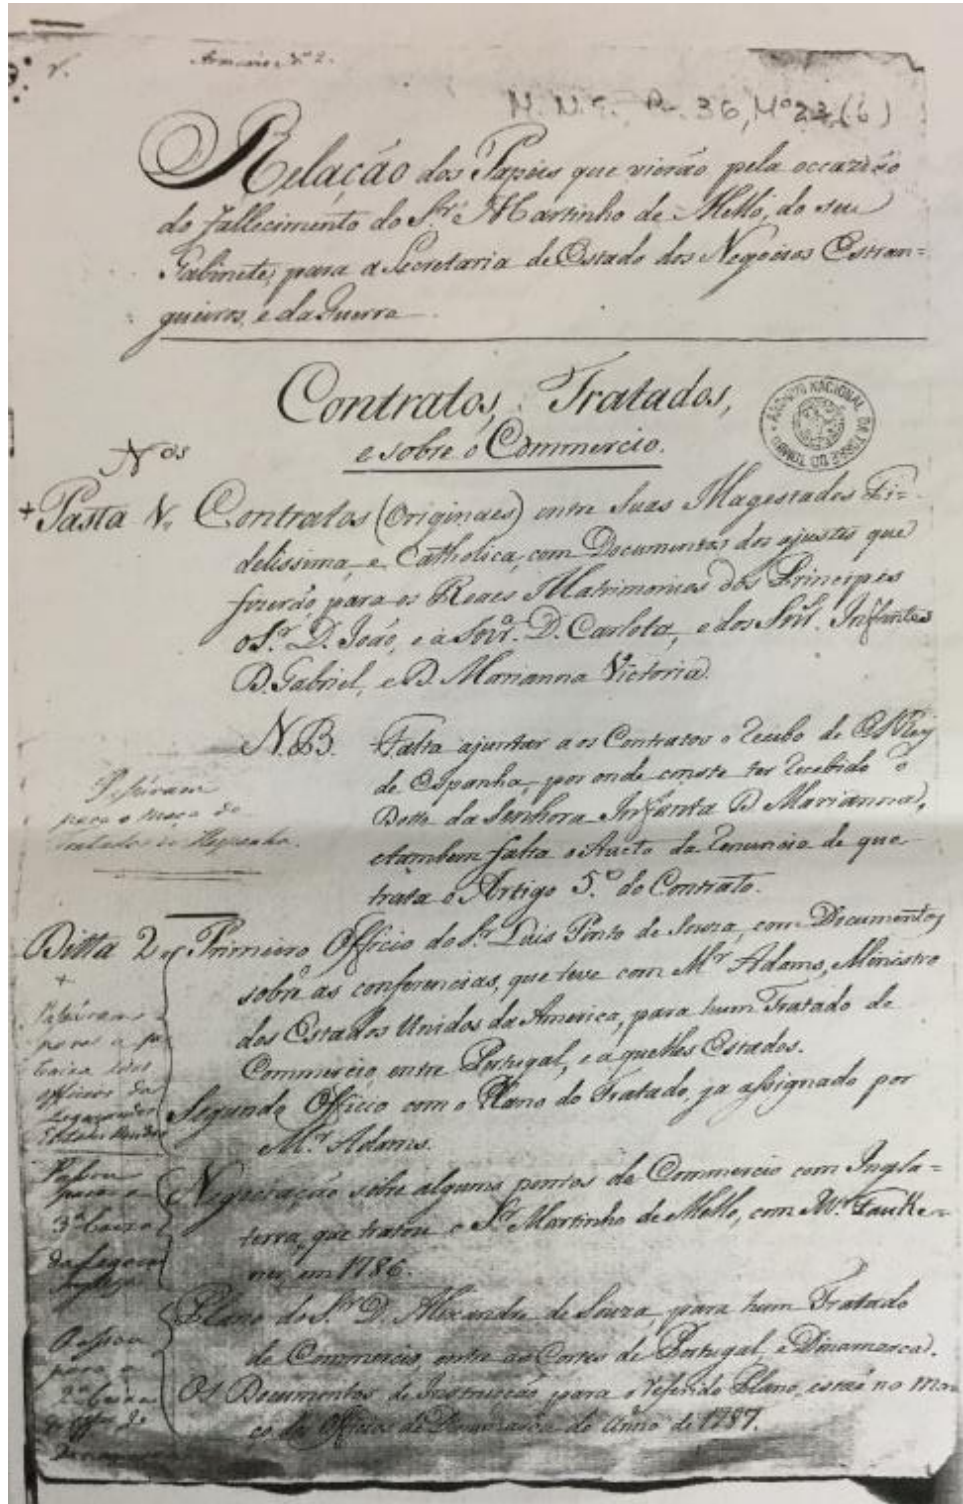 Armario Nº 2.
M. N. E. 36, Mº 23 (6)
Relação dos Papeis que vierão pela occazião
do fallecimento do Sr. Martinho de Mello, do seu
Gabinete, para a Secretaria de Estado dos Negocios Estran=
gueiros, e da Guerra.
Contratos, Tratados,
e sobre o Commercio.
ARQUIVO NACIONAL DA TORRE DO TOMBO
Nos
+ Pasta 1. Contratos (Originaes) entre Suas Magestades Fi=
delissima, e Catholica, com Documentos dos ajustes que
fizerão para os Reaes Matrimonios dos Principes
o Sr. D. João, e a Snrª. D. Carlota, e dos Snrs. Infantes
D. Gabriel, e D. Marianna Victoria.
N.B. Falta ajuntar aos Contratos o recibo de El Rey
de Espanha, por onde conste ter recebido o
Dote da Senhora Infanta D. Marianna,
e tambem falta o Aucto da renuncia de que
trata o Artigo 5.º do Contrato.
Passáram
para o maço de
Tratados de Hespanha.
Ditta 2. Primeiro Officio do Sr. Luis Pinto de Souza, com Documentos
sobre as conferencias, que teve com Mr. Adams, Ministro
dos Estados Unidos da America, para hum Tratado de
Commercio entre Portugal, e aquelles Estados.
Segundo Officio com o Plano do Tratado, ja assignado por
Mr. Adams.
+
Passáram
para a
Caixa dos
officios da
Legação dos
Estados Unidos
Negociação sobre alguns pontos de Commercio com Ingla=
terra, que tratou o Sr. Martinho de Mello, com Mr. Fauke=
ner, em 1786.
Passou
para a
3ª Caixa
da Legação
Plano do Sr. D. Alexandre de Souza, para hum Tratado
de Commercio, entre as Cortes de Portugal, e Dinamarca.
Os Documentos de Instrucção para o referido Plano, estão no ma=
ço dos Officios de Dinamarca do anno de 1787.
Passou
para a
2ª Caixa